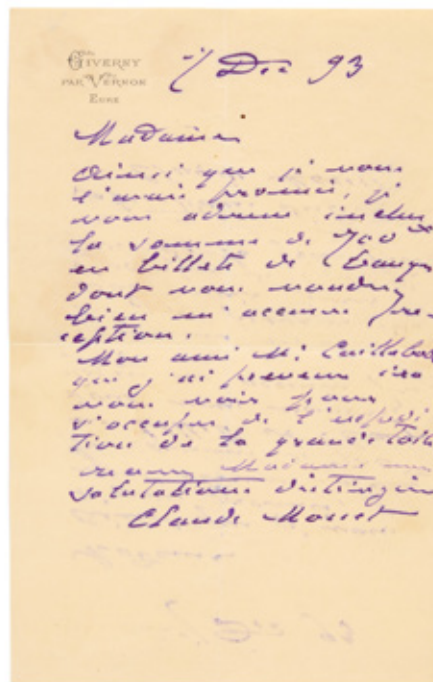 GIVERNY
PAR VERNON
EURE
7 Dec 93
Madame
Ainsi que je vous
l'avais promis, je
vous adresse inclus
la somme de 700
en billets de banque
dont vous voudrez
bien m'accuser ré-
ception.
Mon ami Mr Caillebotte
que j'ai prévenu ira
vous voir pour
s'occuper de l'expédi
tion de la grande toile
Madame mes
salutations distinguées
Claude Monet